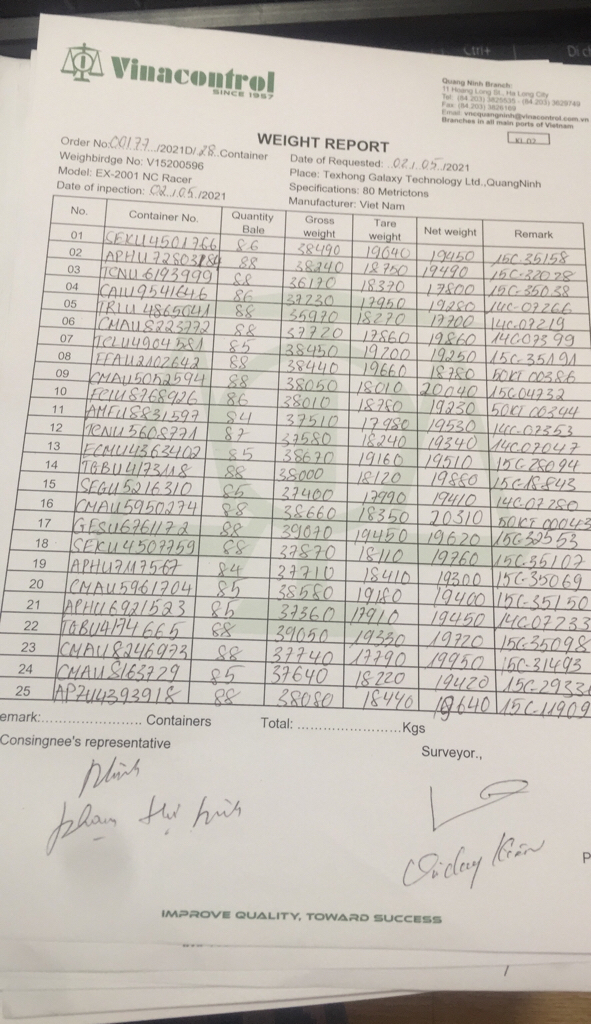 Ctrl+
Vinacontrol
SINCE 1957
Quang Ninh Branch:
11 Hoang Long St., Ha Long City
Tel: (84.203) 3825535 - (84.203) 3629749
Fax: (84.203) 3826169
Email: vncquangninh@vinacontrol.com.vn
Branches in all main ports of Vietnam
WEIGHT REPORT
Order No: 00177 /2021D/ 28 Container
Date of Requested: 02/05/2021
Weighbirdge No: V15200596
Place: Texhong Galaxy Technology Ltd.,QuangNinh
Model: EX-2001 NC Racer
Specifications: 80 Metrictons
Date of inpection: 02/05/2021
Manufacturer: Viet Nam
No. Container No. Quantity Bale Gross weight Tare weight Net weight Remark
01 SEKU4501766 86 38490 19040 19450 15C-35158
02 APHU7280 88 38240 18750 19490 15C-32028
03 TCNU6193999 88 36170 18370 17800 15C-35038
04 CAIU9541646 86 37230 17950 19280 14C-07266
05 TRLU4865041 88 35970 18270 17700 14C-07219
06 CMAU8223772 88 37720 17860 19860 14C07399
07 TCLU4904581 85 38450 19200 19250 15C-35191
08 FFAU2102642 88 38440 19660 18780 50KT 00386
09 CMAU5052594 88 38050 18010 20040 15C04732
10 ECMU8768926 86 38010 18780 19230 50KT 00344
11 AMFU8831597 84 37510 17980 19530 14C-07353
12 TCNU5608771 87 37580 18240 19340 14C07047
13 ECMU4363402 85 38670 19160 19510 15C-28094
14 TGBU4173118 88 38000 18120 19880 15C-18843
15 SEGU5216310 85 37400 17990 19410 14C-07280
16 CMAU5950274 88 38660 18350 20310 50KT 00043
17 GESU6761172 88 39070 19450 19620 15C-32553
18 SEKU4507759 88 37870 18110 19760 15C-35102
19 APHU7117567 84 37710 18410 19300 15C-35069
20 CMAU5961704 85 38580 19180 19400 15C-35150
21 APHU6921523 85 37360 17910 19450 14C07233
22 TGBU4174665 88 39050 19330 19720 15C-35098
23 CMAU8246973 88 37740 17790 19950 15C-31493
24 CMAU8163729 85 37640 18220 19420 15C-29331
25 APZU4393918 88 38080 18440 19640 15C-11909
emark:........................ Containers Total: ........................Kgs
Consingnee's representative
Surveyor.,
P
IMPROVE QUALITY, TOWARD SUCCESS